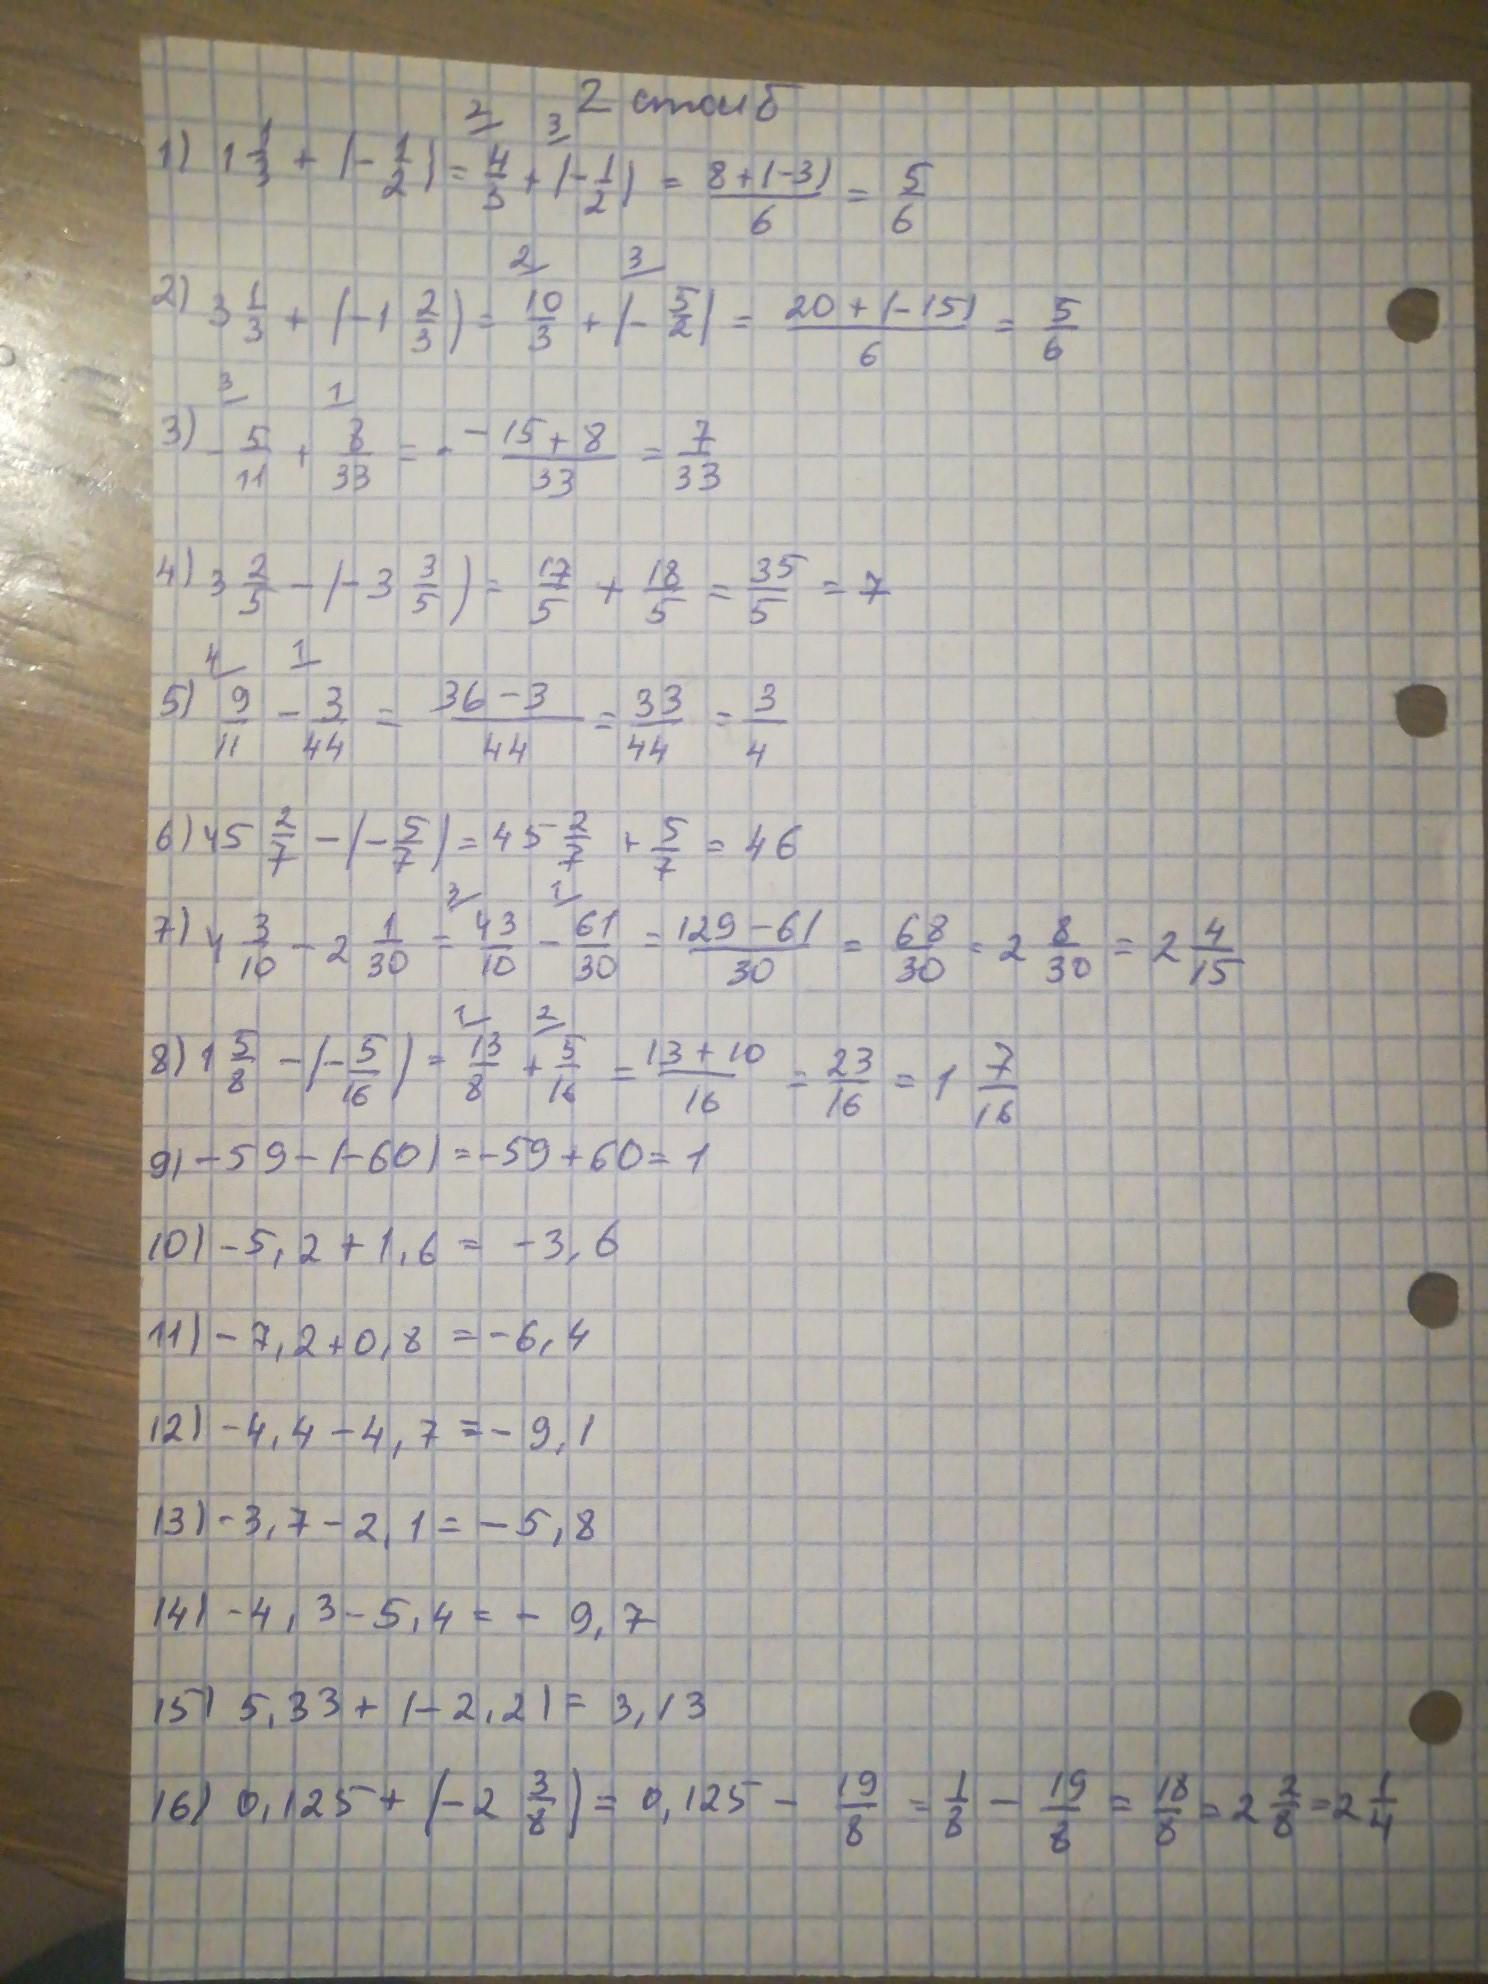 2 столб
1) 1 1/3 + (-1/2) = 4/3 + (-1/2) = 8+(-3)/6 = 5/6
2) 3 1/3 + (-1 2/3) = 10/3 + (-5/2) = 20+(-15)/6 = 5/6
3) -5/11 + 8/33 = -15+8/33 = 7/33
4) 3 2/5 - (-3 3/5) = 17/5 + 18/5 = 35/5 = 7
5) 9/11 - 3/44 = 36-3/44 = 33/44 = 3/4
6) 45 2/7 - (-5/7) = 45 2/7 + 5/7 = 46
7) 4 3/10 - 2 1/30 = 43/10 - 61/30 = 129-61/30 = 68/30 = 2 8/30 = 2 4/15
8) 1 5/8 - (-5/16) = 13/8 + 5/16 = 13+10/16 = 23/16 = 1 7/16
9) -59-(-60) = -59+60 = 1
10) -5,2+1,6 = -3,6
11) -7,2+0,8 = -6,4
12) -4,4-4,7 = -9,1
13) -3,7-2,1 = -5,8
14) -4,3-5,4 = -9,7
15) 5,33+(-2,2) = 3,13
16) 0,125+(-2 3/8) = 0,125 - 19/8 = 1/8 - 19/8 = 18/8 = 2 2/8 = 2 1/4